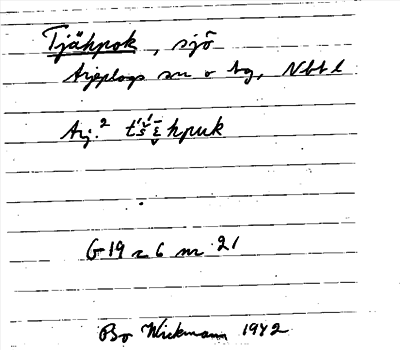 Tjåkpok, sjö
Arjeplogs sn o tg, Nbt l
Arj.² t'š'ε̄kpuk
G 19 r 6 nr 21
Bo Wickmann 1942